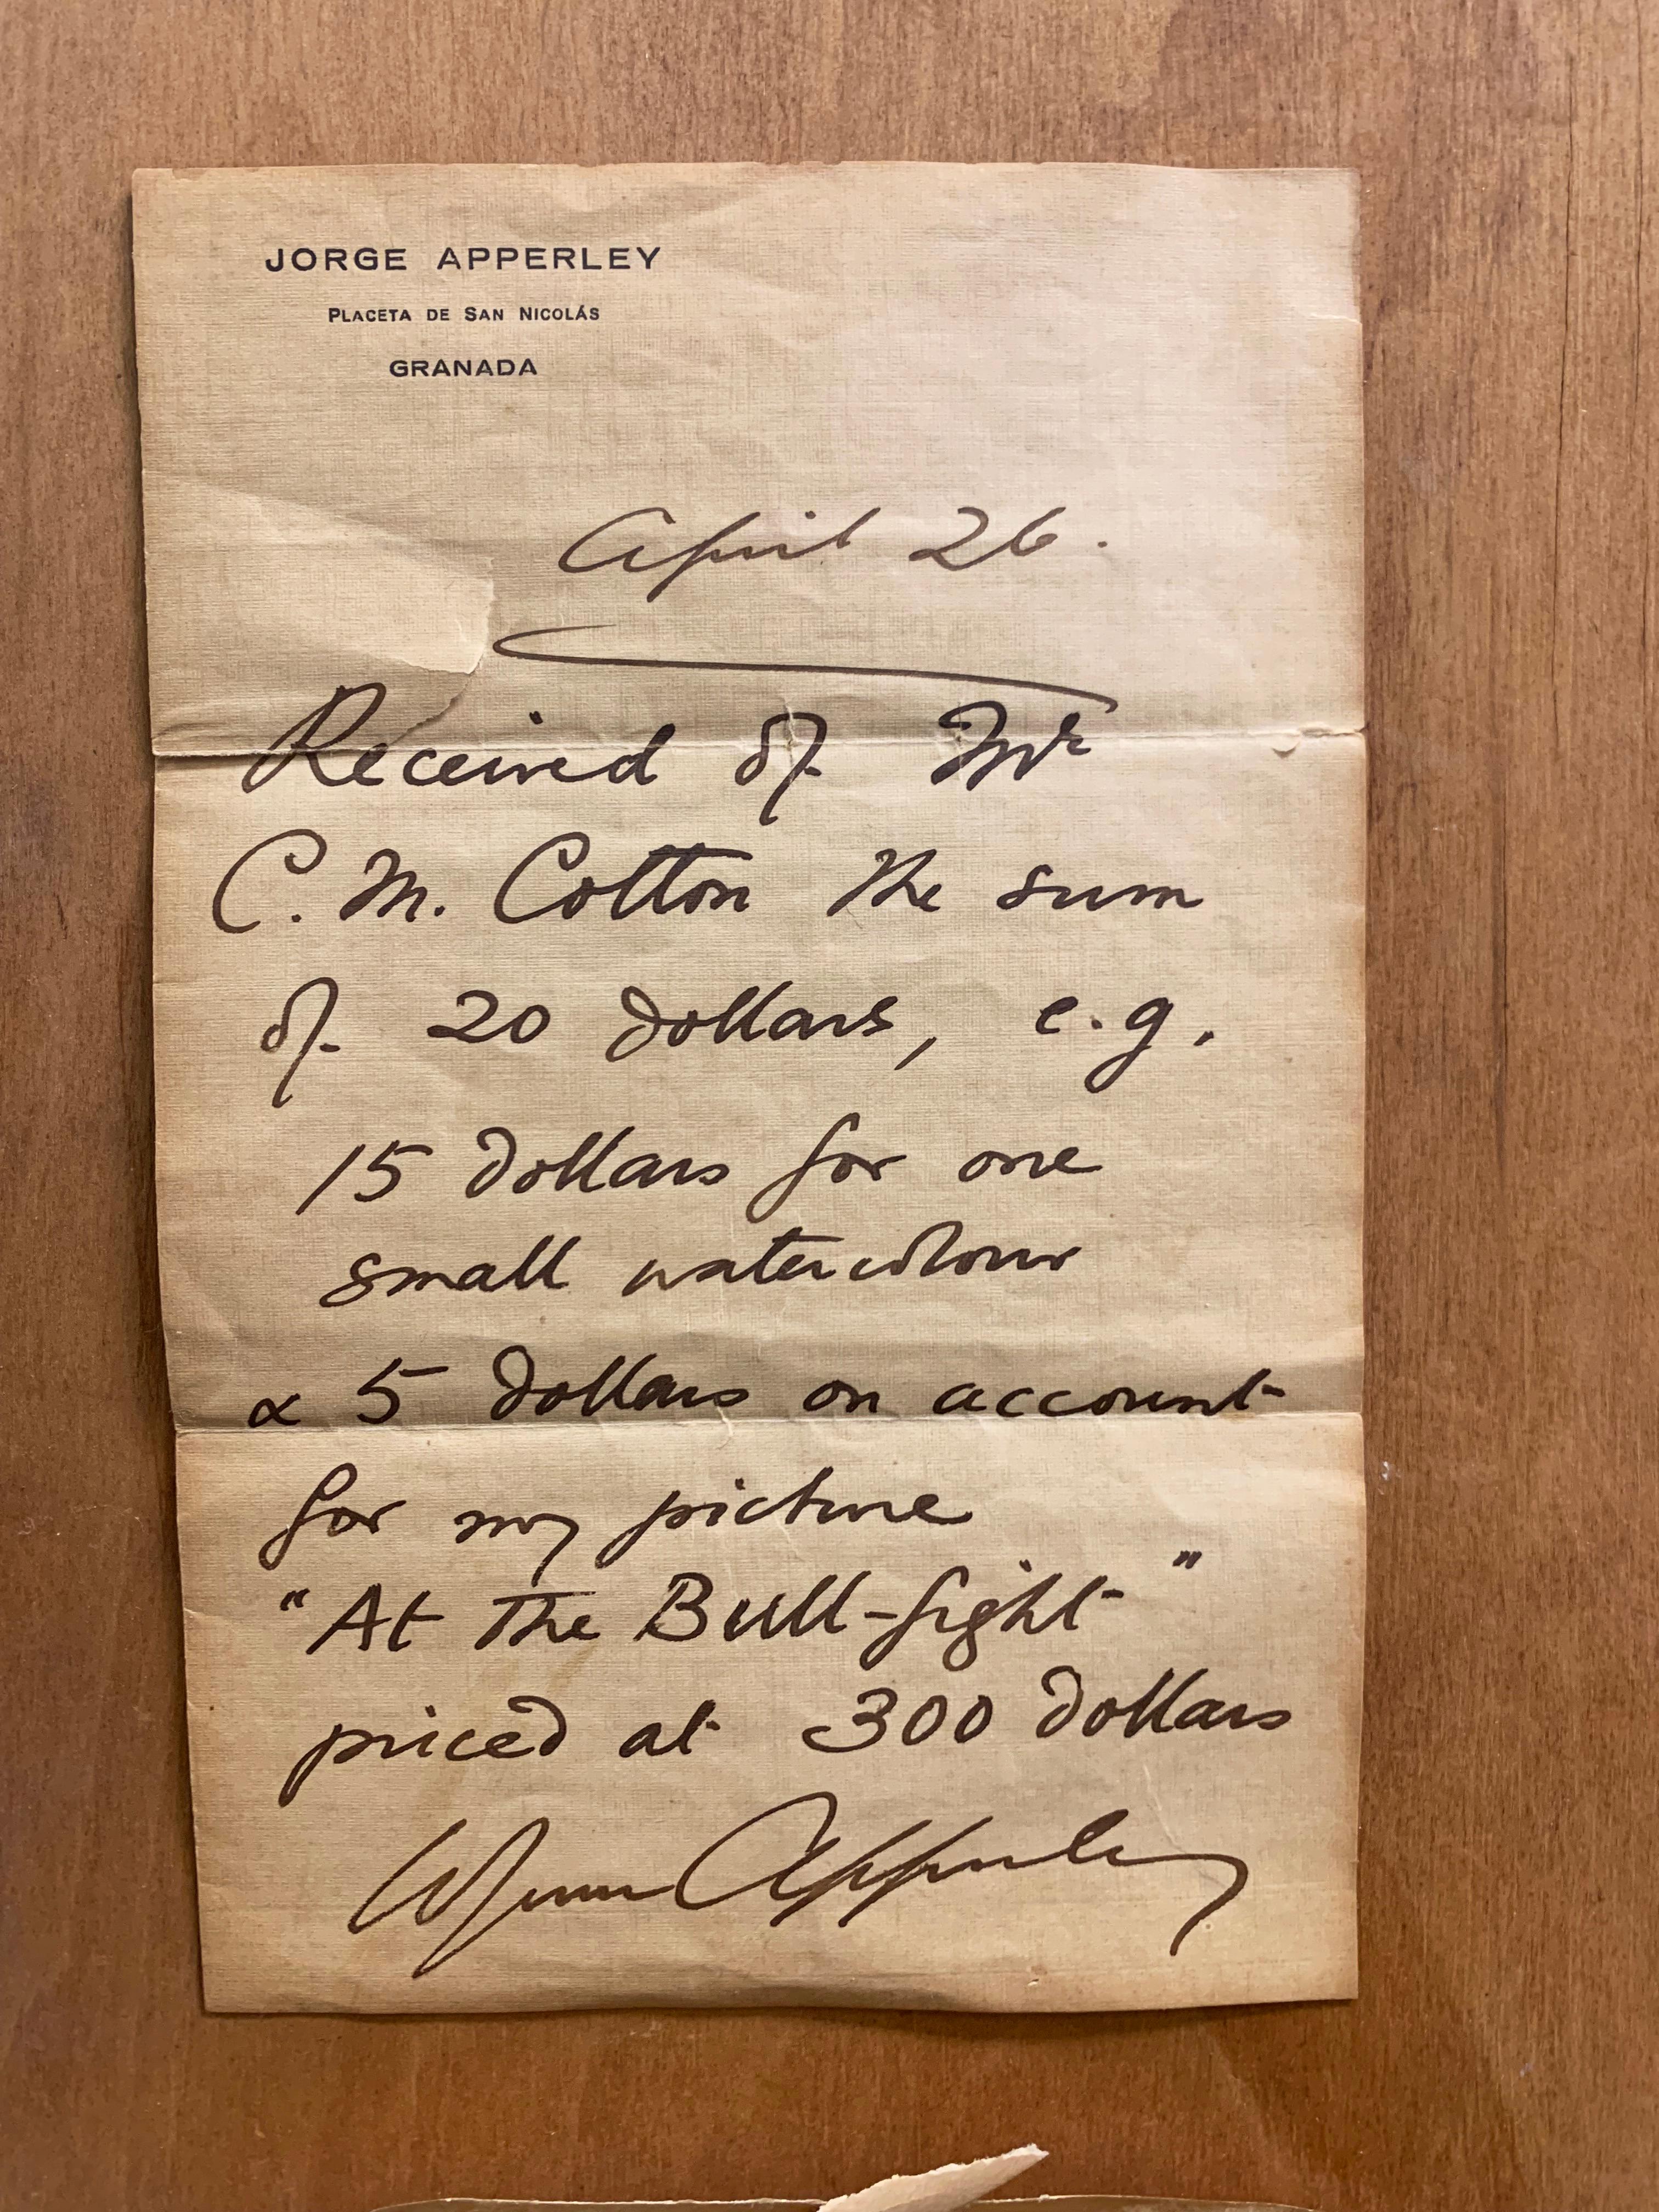 JORGE APPERLEY
PLACETA DE SAN NICOLÁS
GRANADA
April 26.
Received of Mr
C. M. Cotton the sum
of 20 dollars, e.g.
15 dollars for one
small watercolour
& 5 dollars on account
for my picture
"At the Bull-fight"
priced at 300 dollars
Wynne Apperley